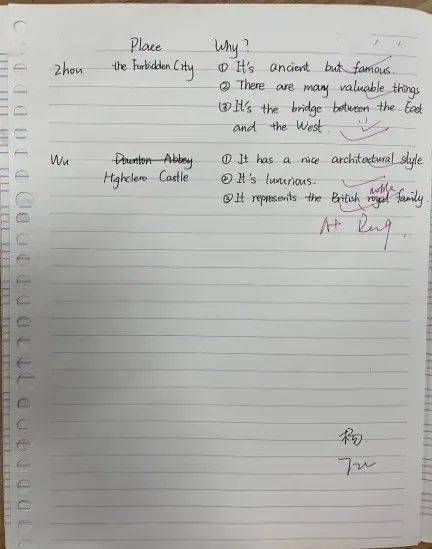 Place Why?
Zhou the Forbidden City ① It's ancient but famous.
② There are many valuable things
③ It's the bridge between the East
and the West.
Wu Downton Abbey ① It has a nice architectural style
Highclere Castle ② It's luxurious.
noble
③ It represents the British royal family.
A+
杨